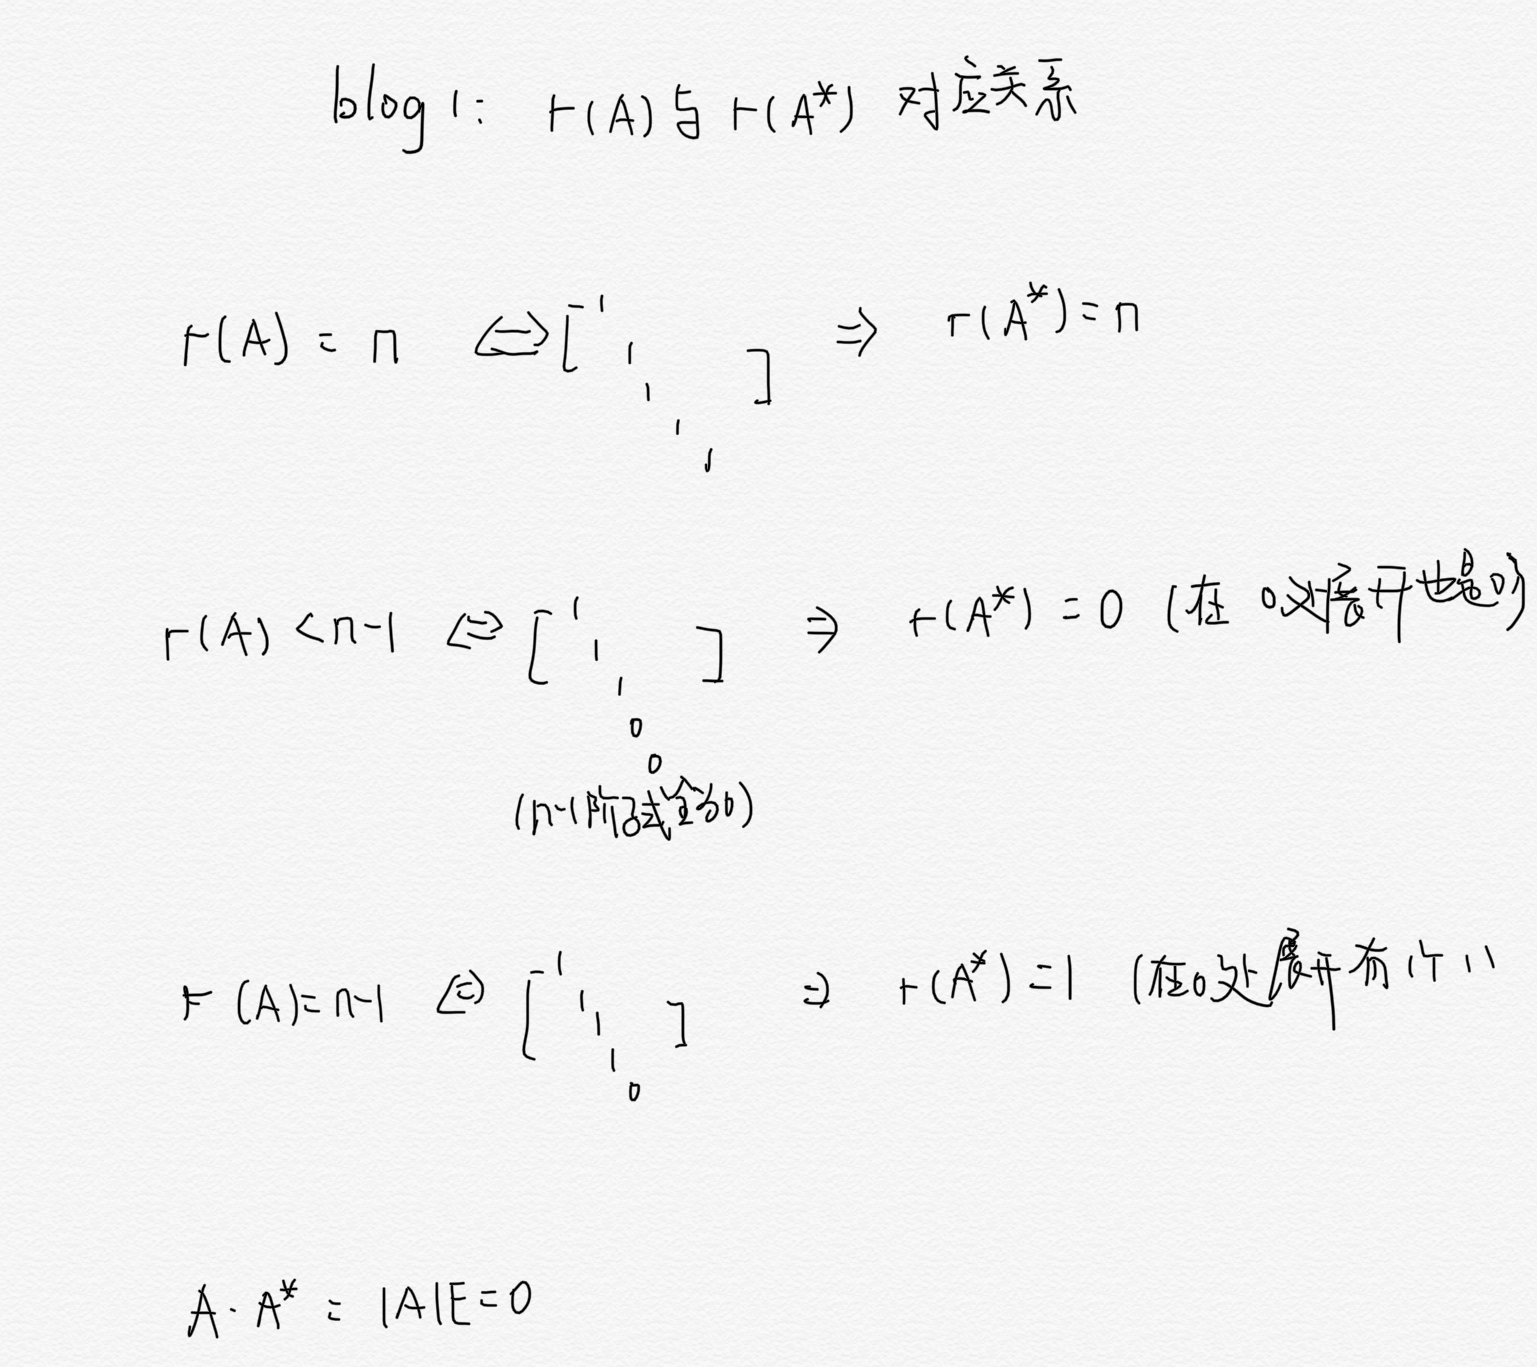 blog 1: r(A) 与 r(A*) 对应关系
r(A) = n ⇔ [ 1 1 1 1 1 ] ⇒ r(A*) = n
r(A) < n-1 ⇔ [ 1 1 1 0 0 ] ⇒ r(A*) = 0 (在 0处展开也是0)
(n-1阶子式全为0)
r(A) = n-1 ⇔ [ 1 1 1 1 0 ] ⇒ r(A*) = 1 (在0处展开有1个1)
A · A* = |A|E = 0